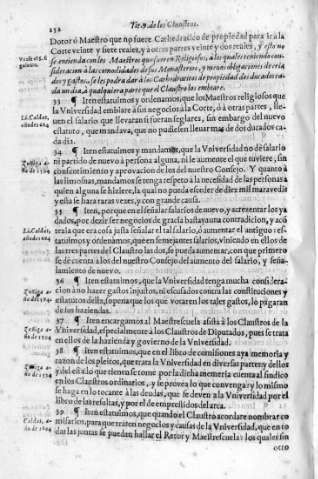 252
Tit. 9. de los Claustros.
Dotor ó Maestro que no fuere Cathedratico de propiedad para ir a la
Corte veinte y siete reales, y a otros partes veinte y dos reales, y esto no
se entienda con los Maestros que fueren Religiosos, a los quales teniendo con-
sideracion à las comodidades de sus Monasterios, y menos obligaciones de cria
dos y gastos, se les podra dar à los Cathedraticos de propiedad dos ducados ca-
da un dia, à qualquiera parte que el Claustro los embiare.
33 ¶ Iten estatuimos y ordenamos, que los Maestros religiosos que
la Vniversidad embiare à algun negocio a la Corte, ò à otras partes, lle-
uen el salario que lleuaran si fueran seglares, sin embargo del nueuo
estatuto, que mandaua, que no pudiessen lleuar mas de dos ducados
cada dia.
34 ¶ Iten estatuimos y mandamos, que la Vniversidad no dè salario
ni partido de nueuo à persona alguna, ni le aumente el que tuuiere, sin
consentimiento y aprouacion de los del nuestro Consejo. Y quanto à
las limosnas, mandamos se tenga respeto à la necesidad de las personas a
quien alguna se hiziere, la qual no pueda exceder de diez mil marauedis
y esta se hara raras vezes, y con grande causa.
35 ¶ Iten, porque en el señalar salarios de nueuo, y acrecentar los ya
dados, por dezir ser negocios de gracia bastaua una contradicion, y acõ
tecia que era cosa justa señalar el tal salario, ò aumentar el antiguo: es-
tatuimos y ordenamos, que en semejantes salarios, viniendo en ellos de
las tres partes del Claustro las dos, se pueda aumentar, con que primero
se dè cuenta à los del nuestro Consejo del aumento del salario, y seña-
lamiento de nueuo.
36 ¶ Iten estatuimos, que la Vniversidad tenga mucha conside-
racion à no hazer gastos injustos, ni escusados contra las constituciones y
estatutos della, so pena que los que votaren los tales gastos, lo pagaran
de sus haziendas.
37 ¶ Iten encargamos al Maestrescuela assista à los Claustros de la
Vniversidad, especialmente à los Claustros de Diputados, pues se trata
en ellos de la hazienda y gouierno de la Vniversidad.
38 ¶ Iten estatuimos, que en el libro de comisiones aya memoria y
razon de los pleitos, que trata la Vniversidad en diuersas partes y dellos
y del estado que tienen se tome por la dicha memoria cuenta al sindico
en los Claustros ordinarios, y se prouea lo que conuenga y lo mismo
se haga en lo tocante à las deudas, que se deuen à la Vniversidad por el
libro de las resultas, y por el de emprestidos del arca.
39 ¶ Iten estatuimos, que quando el Claustro acordare nombrar co
missarios, para que traten negocios y causas de la Vniversidad, que en to
das las juntas se puedan hallar el Retor y Maestrescuela: los quales sin
otro